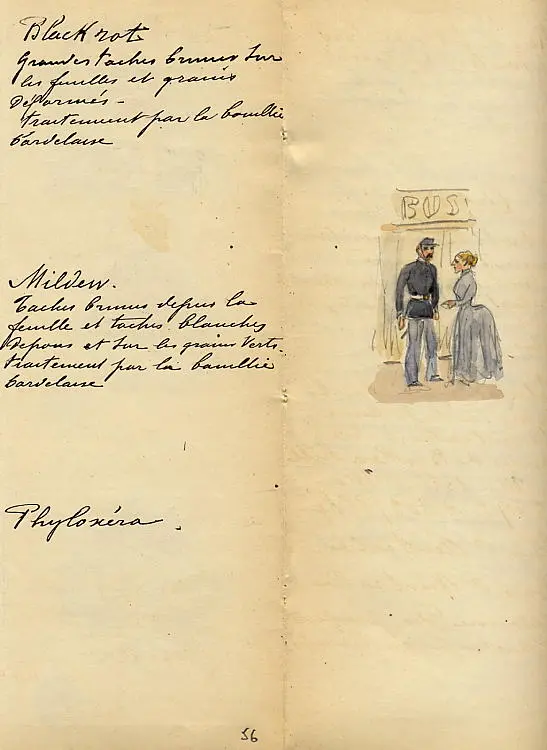 Black rot
Grandes taches brunes sur
les feuilles et grains
Déformés -
traitement par la bouillie
bordelaise
Mildew.
Taches brunes depuis la
feuille et taches blanches
depous et sur les grains verts.
traitement par la bouillie
bordelaise
Phyloxéra
BUS
56